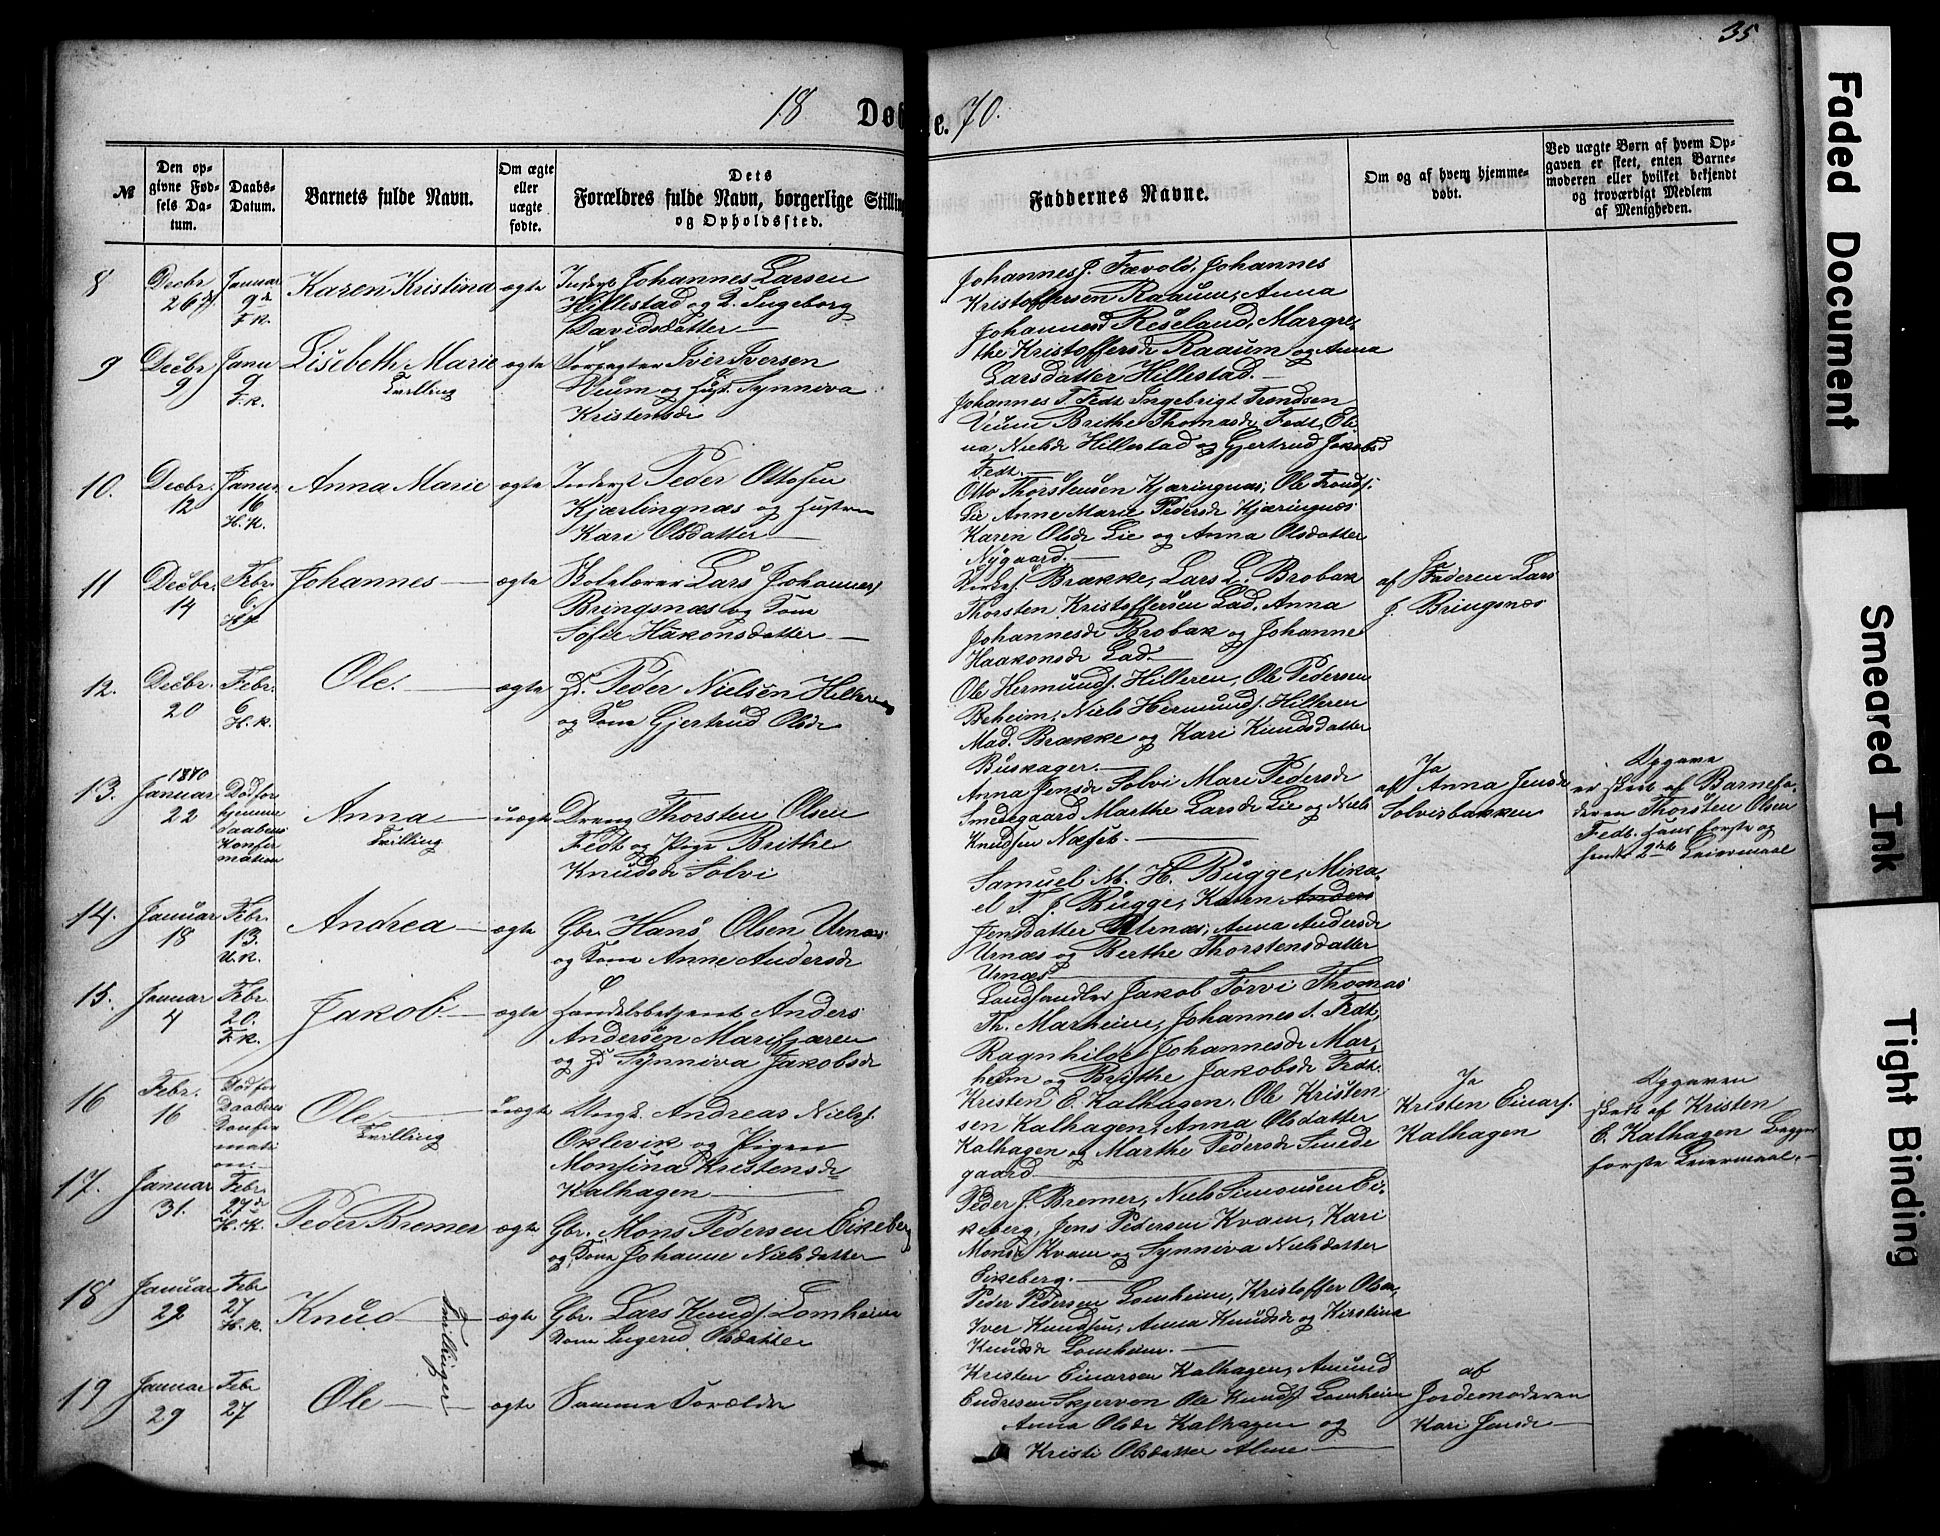 35
18 Døbte. 70.
№
Den opgivne Fødsels Datum.
Daabs-Datum.
Barnets fulde Navn.
Om ægte eller uægte fødte.
Dets Forældres fulde Navn, borgerlige Stilling og Opholdssted.
Faddernes Navne.
Om og af hvem hjemmedøbt.
Ved uægte Børn af hvem Opgaven er skeet, enten Barnemoderen eller hvilket bekjendt og troværdigt Medlem af Menigheden.
8
Decbr 26
Januar 9d F. K.
Karen Kristina
ægte
Johannes Larsen
Hillestad og Ingeborg
Davidsdatter
Johannes J. Fævold, Johannes
Kristoffersen Raaum, Anna
Johannesd Reseland, Margre
the Kristoffersd Raaum og Anna
Larsdatter Hillestad.
9
Decbr 9
Janu 9 F. K.
Lisebeth Marie
Tvilling
ægte
Forpagter Iver Iversen
Veum og Hust. Synneva
Kristensdr
Johannes T. Fedt Ingebrigt Trondsen
Veum Brithe Thomasdr Fedt, Eli
na Nielsdr Hillestad og Gjertrud Jakobsd
Fedt.
10.
Decbr. 12
Januar 16 H. K.
Anna Marie
ægte
Inderst Peder Ottosen
Kjærlingnæs og Hustru
Kari Olsdatter
Otto Thorstensen Kjæringnæs, Ole Trondss.
Lie Anne Marie Pedersdr Kjæringnæs
Karen Olsdr Lie og Anna Olsdatter
Nygaard.
11
Decbr. 14
Febr. 6. H. K.
Johannes
ægte
Skolelærer Lars Johanness
Bringsnæs og Kone
Sofie Hakonsdatter
Brække, Lars L. Brobak
Thorsten Kristoffersen Lad, Anna
Johannesdr Brobak og Johanne
Haakonsdr Lad
af Faderen Lars
J. Bringsnæs
12.
Decbr. 20
Febr. 6 H. K.
Ole.
ægte
Peder Nielsen Hilleren
og Kone Gjertrud Olsdr
Ole Hermunds. Hilleren, Ole Pedersen
Beheim, Niels Hermunds. Hilleren
Mad. Brække og Kari Knudsdatter
Buskager.
13.
1870 Januar 22
Død før hjemme Daabens Konfirmation
Anna
Tvilling
uægte
Dreng Thorsten Olsen
Fedt og Pige Brithe
Knudsdr Solvi
Anna Jensdr Solvi Mari Pedersdr
Smedegaard Marthe Larsdr Lie og Niels
Knudsen Næset.
Ja
af Anna Jensdr
Solvisbakken
Opgave
er skeet af Barnefa
deren Thorsten Olsen
Fedt. hans første og
hendes 2det Leiermaal
14.
Januar 18
Febr. 13. U. K.
Andrea
ægte
Gbr. Hans Olsen Urnæs
og Kone Anne Andersdr
Samuel M. H. Bugge, Mika
el T. J. Bugge, Karen Anders
Jensdatter Urnæs, Anna Andersdr
Urnæs og Berthe Thorstensdatter
Urnæs
15.
Januar 4
Febr. 20. F. K.
Jakob.
ægte
Handelsbetjent Anders
Andersen Marifjæren
og Synneva Jakobsdr
Landhandler Jakob Tørvi Thomas
Th. Marheim, Johannes S. Fedt,
Ragnhilde Johannesdr Mar
heim og Brithe Jakobsdr Fedt.
16
Febr. 16
Død før Daabens Konfirmation.
Ole
Tvilling
uægte
Ungk. Andreas Nielss.
Oklevik og Pigen
Monsina Kristensdr
Kalhagen
Kristen E. Kalhagen, Ole Kristen
sen Kalhagen, Anna Olsdatter
Kalhagen og Marthe Pedersdr Smede
gaard
Ja
Kristen Einarss.
Kalhagen
Opgaven
skete af Kristen
E. Kalhagen Begges
første Leiermaal.
17.
Januar 31.
Febr. 27de H. K.
Peder Bremer
ægte
Gbr. Mons Pedersen Eikeberg
og Kone Johanne Nielsdatter
Peder J. Bremer, Niels Simonsen Ei
keberg, Jens Pedersen Kvam, Kari
Monsdr Kvam og Synneva Nielsdatter
Eikeberg.
18
Januar 29
Febr 27 H. K.
Knud
Tvillinger
ægte
Gbr. Lars Knuds. Lomheim
Kone Ingerid Olsdatter
Peder Pedersen Lomheim, Kristoffer Olsen,
Iver Knudsen, Anna Knudsdr og Kirstina
Knudsdr Lomheim.
19
Januar 29
Febr 27
Ole
ægte
Samme Forældre
Kristen Einarsen Kalhagen, Amund
Endresen Skjervon Ole Knuds Lomheim
Anna Olsdr Kalhagen og
Kristi Olsdatter Alme
af
Jordemoderen
Kari Jensdr
Faded Document
Smeared Ink
Tight Binding